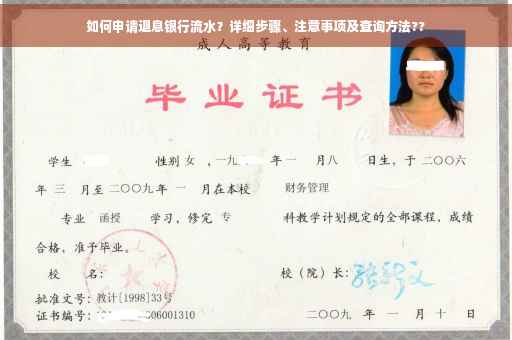 如何申请退息银行流水？详细步骤、注意事项及查询方法??
成人高等教育
毕业证书
学生 性别 女 ，一九 年 一 月 八 日生，于 二〇〇六
年 三 月至 二〇〇九 年 一 月在本校 财务管理
专业 函授 学习，修完 专 科教学计划规定的全部课程，成绩
合格，准予毕业。
校 名： 校（院）长：
批准文号：教计[1998]33号
证书编号： 06001310 二〇〇九 年 一 月 十 日